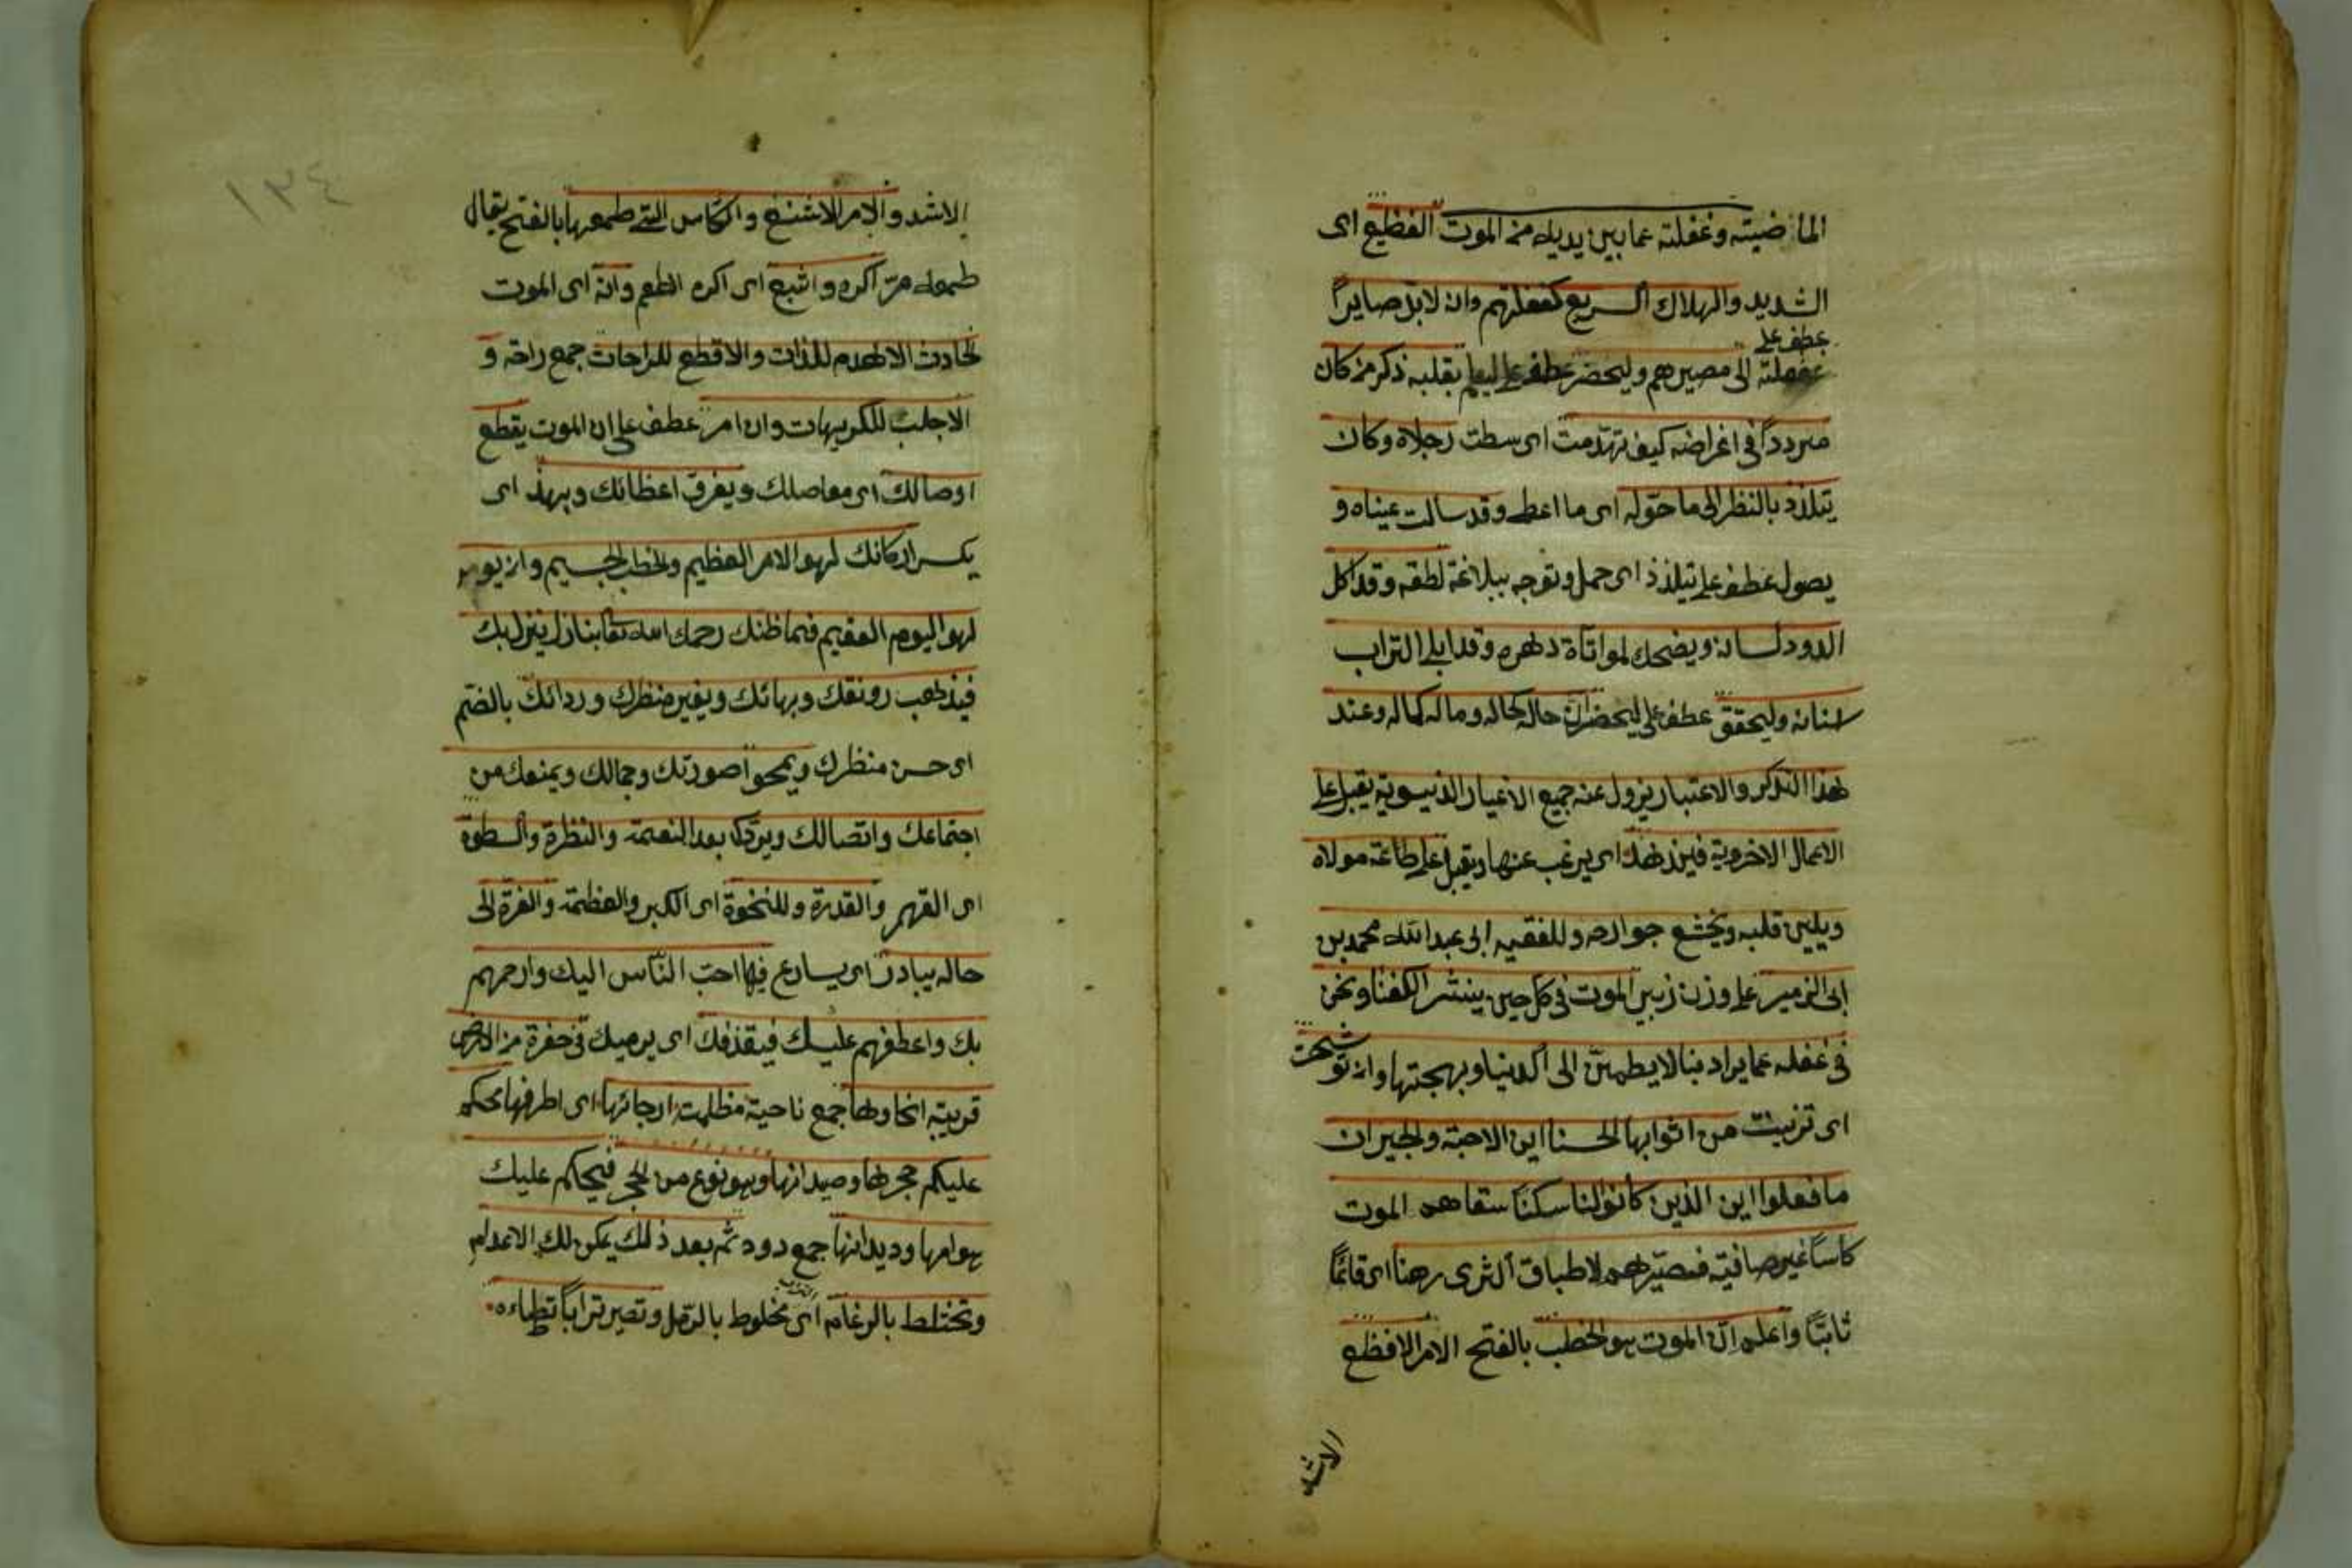 الماضيته وغفلته عما بين يديه من الموت الفظيع اى
الشديد والهلاك السريع كغفلتهم وان لابد صايراً
عطف على
غفلته الى مصيرهم وليحضر عطف على ليعلم بقلبه ذكر من كان
مترددا فى اغراضه كيف تهدمت اى سطت رجلاه وكان
يتلذذ بالنظر الى ما حوله اى ما اعطى وقد سالت عيناه و
يصول عطف على يتلذذ اى حمل وتوجه ببلاغة نطقه وقد اكل
الدود لسانه ويضحك لمواتاة دهره وقد ابلى التراب
اسنانه وليحقق عطف على ليحضر ان حاله كحاله وماله كماله وعند
هذا التذكر والاعتبار يزول عنه جميع الاغيار الدنيوية يقبل على
الاعمال الاخروية فيزهد اى يرغب عنها ويقبل على طاعة مولاه
ويلين قلبه ويخشع جوارحه وللفقيه ابى عبد الله محمد بن
ابى الزمير على وزن زبير الموت فى كل حين ينشر الكفنا ونحن
فى غفله عما يراد بنا لا يطمئن الى الدنيا وبهجتها وان توشحت
اى تزينت من اثوابها الحسنا اين الاحبة والجيران
ما فعلوا اين الذين كانوا لنا سكنا سقاهم الموت
كاساً غير صافية فصيرهم لاطباق الثرى رهنا اى قائماً
ثابتاً واعلم ان الموت هو الخطب بالفتح الامر الافظع
الاشد
١٣٤
الاشد والامر الاشنع والكاس التى طعمها بالفتح يقال
طعمه مر اكره وابشع اى اكره الطعم وانه اى الموت
الحادث الاهدم للذات والاقطع للراحات جمع راحة و
الاجلب للكريهات وان امر عطف على ان الموت يقطع
اوصالك اى مفاصلك ويفرق اعظائك ويهد اى
يكسر اركانك لهو الامر العظيم والخطب الجسيم وان يومه
لهو اليوم العقيم فما ظنك رحمك الله تعا بنازل ينزل بك
فيذهب رونقك وبهائك ويغير منظرك وردائك بالضم
اى حسن منظرك ويمحوا صورتك وجمالك ويمنعك من
اجتماعك واتصالك ويردك بعد النعمة والنظرة والسطوة
اى القهر والقدرة وللنخوة اى الكبر والعظمة والغرة الى
حاله يبادر اى يسارع فيها احب الناس اليك وارحمهم
بك واعطفهم عليك فيقذفك اى يرميك فى حفرة من الارض
قريبة انحاوها جمع ناحية مظلمة ارجائها اى اطرفها محكم
عليكم حجرها وصيدانها وهو نوع من الحجر فيحكم عليك
هوامها وديدانها جمع دود ثم بعد ذلك يمكن لك الاعدام
وتختلط بالرغام اى مخلوط بالرمل وتصير تراباً تطاءه